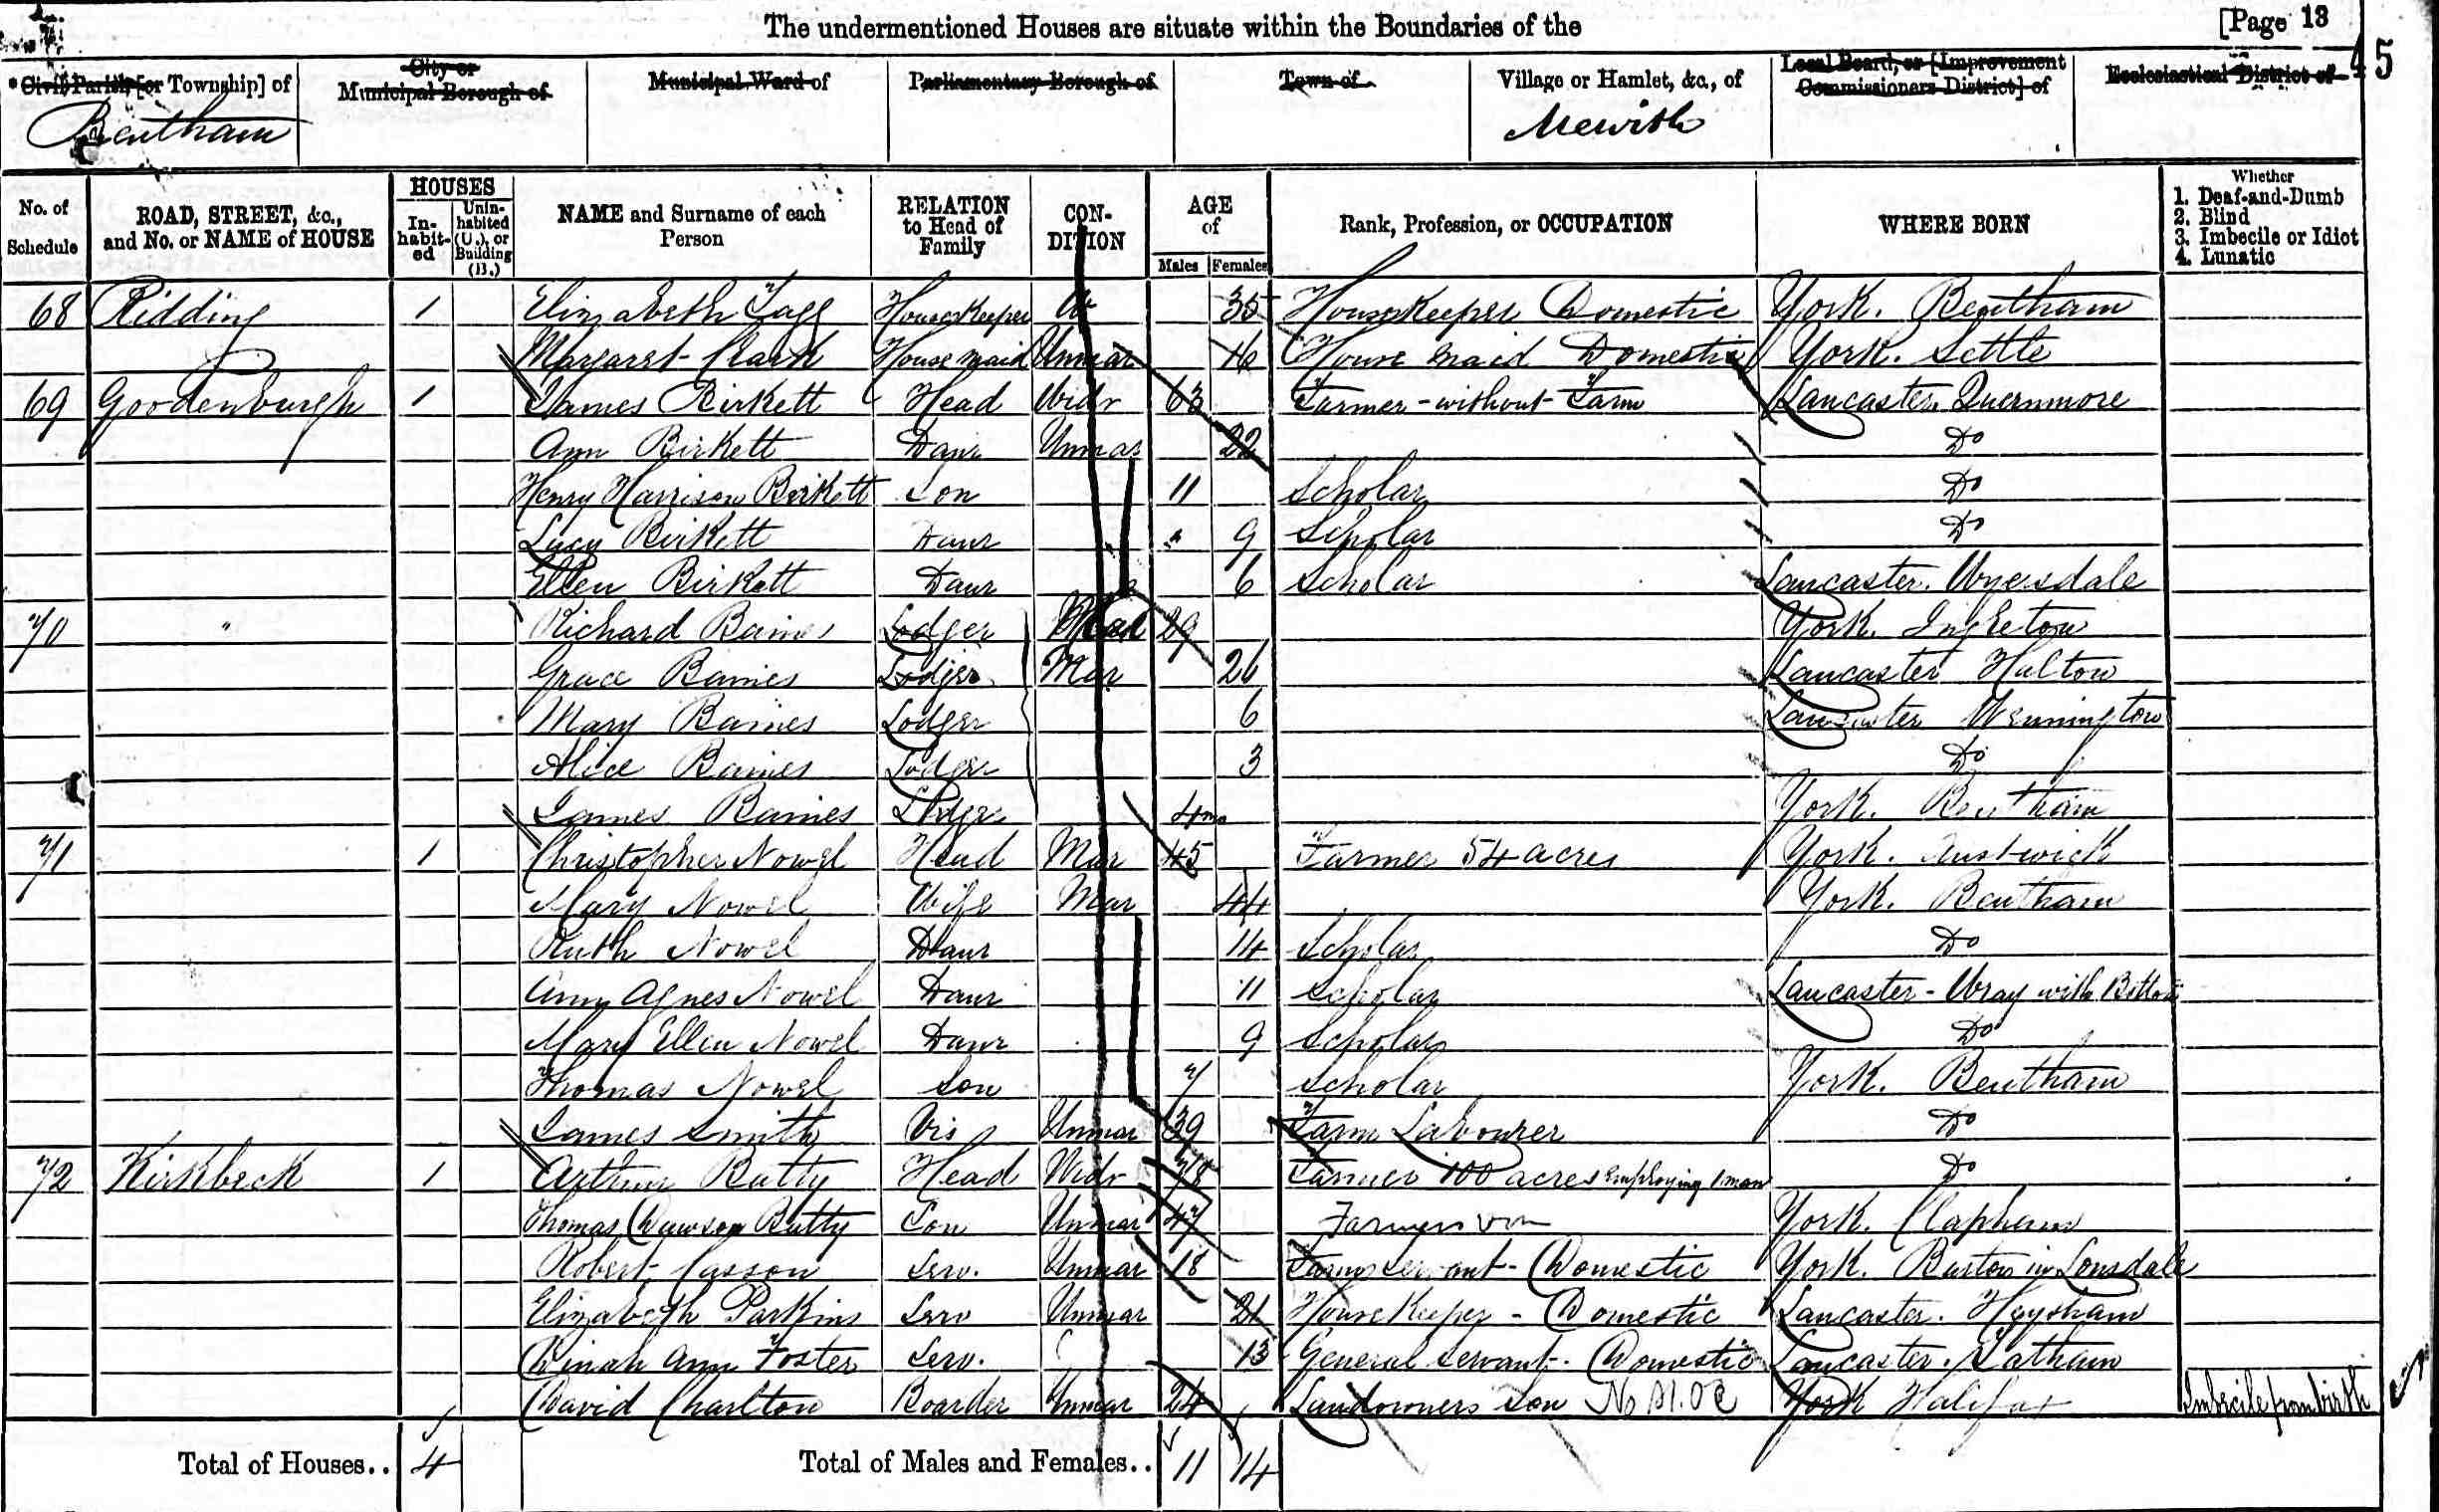 The undermentioned Houses are situate within the Boundaries of the
[Page 13
45
* Civil Parish [or Township] of
City or Municipal Borough of
Municipal Ward of
Parliamentary Borough of
Town of
Village or Hamlet, &c., of
Local Board, or [Improvement Commissioners District] of
Ecclesiastical District of
Bentham
Mewith
No. of Schedule
ROAD, STREET, &c., and No. or NAME of HOUSE
HOUSES
In-habit-ed
Unin-habited (U.), or Building (B.)
NAME and Surname of each Person
RELATION to Head of Family
CON-DITION
AGE of
Males
Females
Rank, Profession, or OCCUPATION
WHERE BORN
Whether
1. Deaf-and-Dumb
2. Blind
3. Imbecile or Idiot
4. Lunatic
68 Ridding 1 Elizabeth Tagg Housekeeper 35 Housekeeper Domestic York. Bentham
Margaret Clark House maid Unmar 16 House maid Domestic York. Settle
69 Goodenburgh 1 James Birkett Head Widr 63 Farmer - without Farm Lancaster. Quernmore
Ann Birkett Daur Unmar 22 Do
Henry Harrison Birkett Son 11 Scholar Do
Lucy Birkett Daur 9 Scholar Do
Ellen Birkett Daur 6 Scholar Lancaster. Wyersdale
70 " Richard Baines Lodger Mar 29 York. Ingleton
Grace Baines Lodger Mar 26 Lancaster Halton
Mary Baines Lodger 6 Lancaster Wennington
Alice Baines Lodger 3 Do
James Baines Lodger 4mo York. Bentham
71 1 Christopher Nowel Head Mar 45 Farmer 54 acres York. Austwick
Mary Nowel Wife Mar 44 York. Bentham
Ruth Nowel Daur 14 Scholar Do
Ann Agnes Nowel Daur 11 Scholar Lancaster - Wray with Botton
Mary Ellen Nowel Daur 9 Scholar Do
Thomas Nowel Son 7 Scholar York. Bentham
James Smith Vis Unmar 39 Farm Labourer Do
72 Kirkbeck 1 Arthur Batty Head Widr 78 Farmer 100 acres Employing 1 man Do
Thomas Dawson Batty Son Unmar 47 Farmers son York. Clapham
Robert Casson Serv. Unmar 18 Farm Servant - Domestic York. Burton in Lonsdale
Elizabeth Parkins Serv Unmar 21 Housekeeper - Domestic Lancaster. Heysham
Dinah Ann Foster Serv. 13 General Servant. Domestic Lancaster. Tatham
David Charlton Boarder Unmar 24 Landowners Son York Halifax Imbecile from birth
Total of Houses.. 4
Total of Males and Females.. 11 14